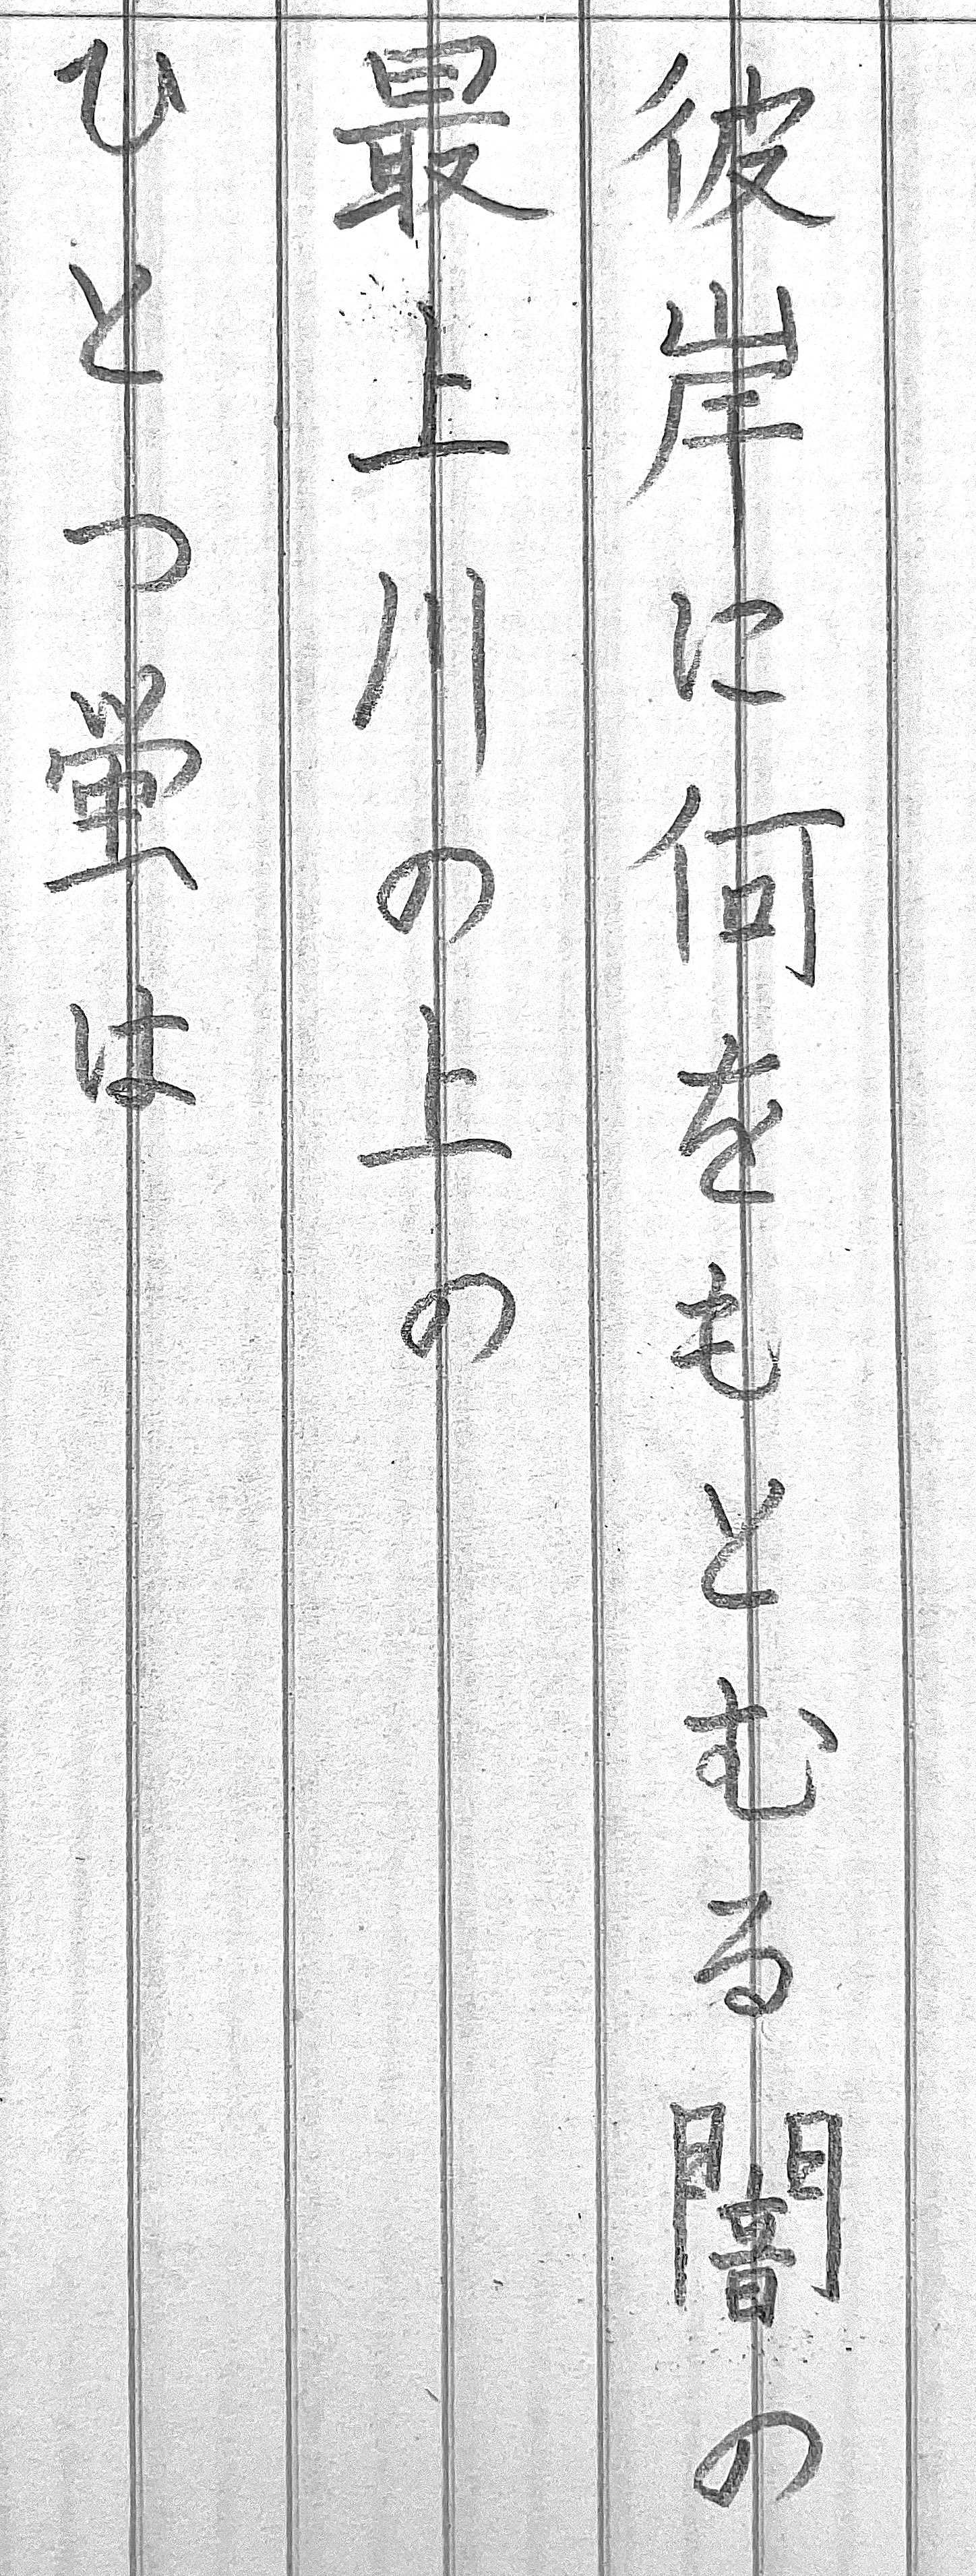 彼岸に何をもとむる闇の
最上川の上の
ひとつ蛍は